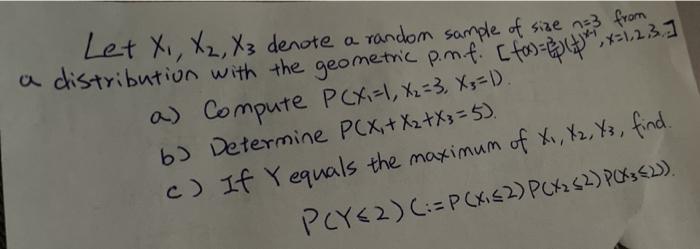 Let X₁, X₂, X₃ denote a random sample of size n=3 from
a distribution with the geometric p.m.f. [f(x)=(3/4)(1/4)ˣ⁻¹, x=1,2,3..]
a) Compute P(X₁=1, X₂=3, X₃=1).
b) Determine P(X₁+X₂+X₃=5).
c) If Y equals the maximum of X₁, X₂, X₃, find.
P(Y≤2) (:=P(X₁≤2)P(X₂≤2)P(X₃≤2)).